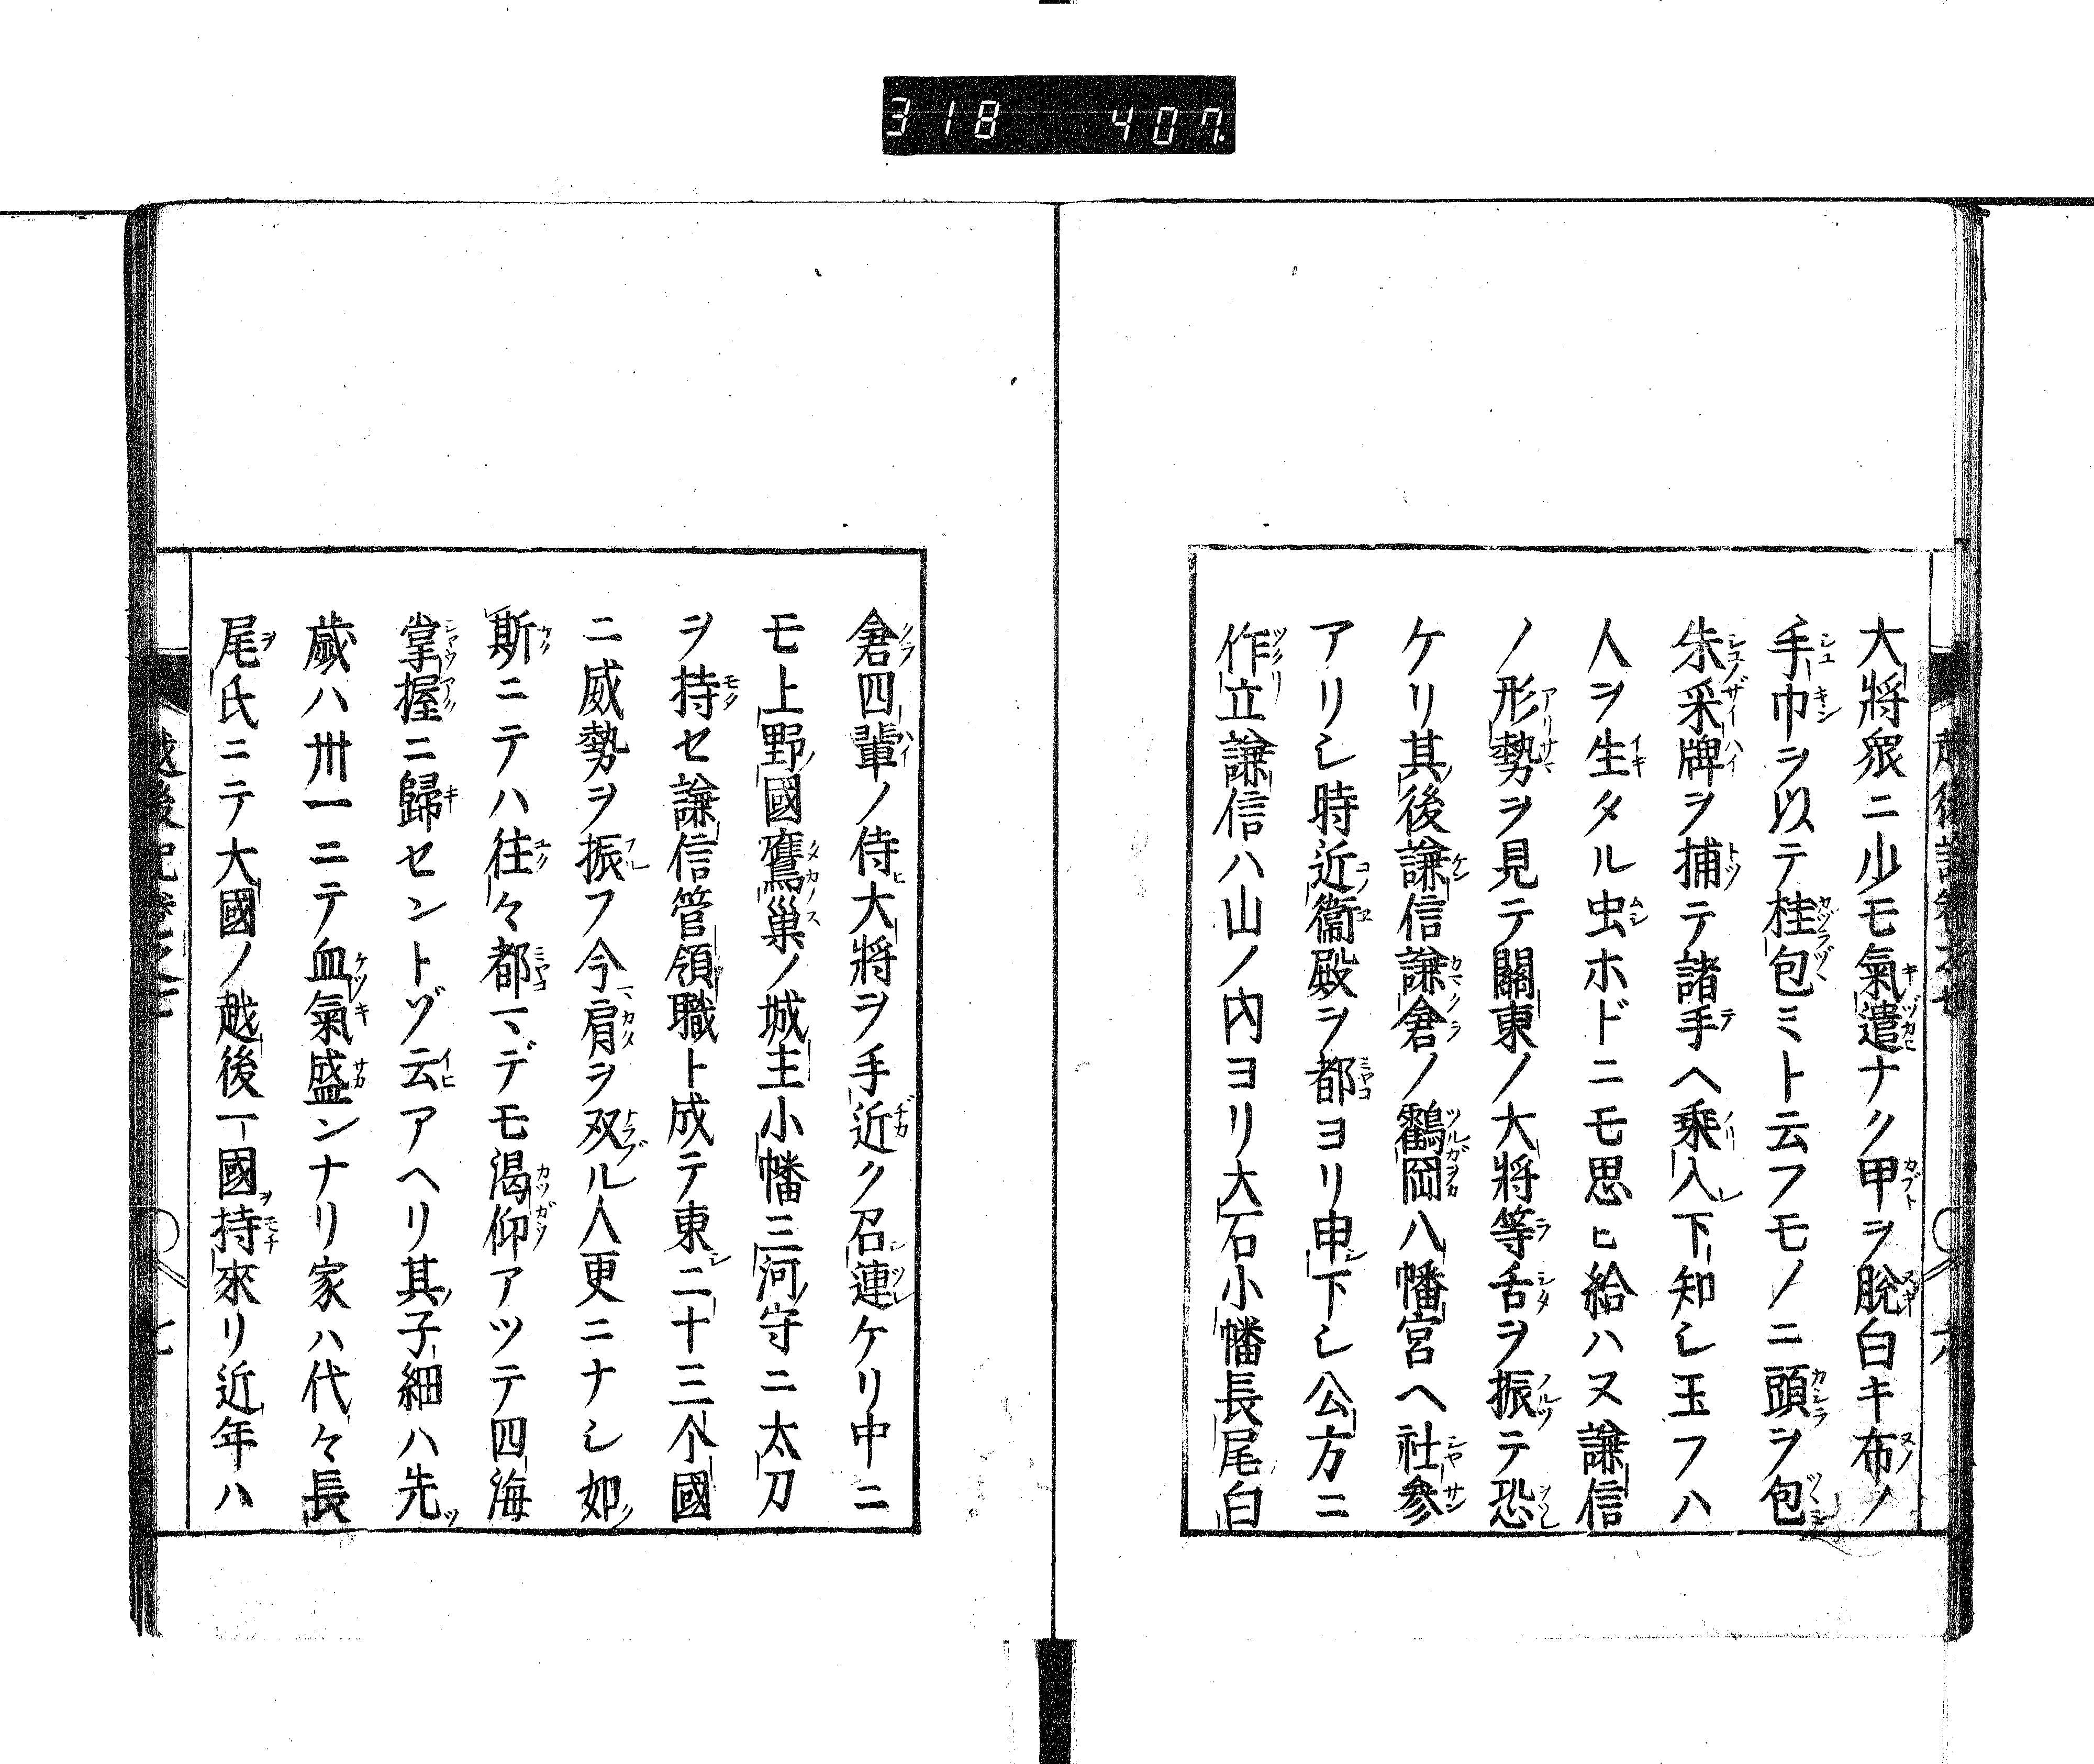 318 407.
大將眾ニ少モ氣遣ナク甲ヲ脫白キ布ノ
手巾ヲ以テ桂包ミト云フモノニ頭ヲ包
朱采牌ヲ捕テ諸手ヘ乘入下知シ玉フハ
人ヲ生タル虫ホドニモ思ヒ給ハヌ謙信
ノ形勢ヲ見テ關東ノ大將等舌ヲ振テ恐
ケリ其後謙信謙倉ノ鸖岡八幡宮ヘ社參
アリシ時近衞殿ヲ都ヨリ申下シ公方ニ
作立謙信ハ山ノ內ヨリ大石小幡長尾白
倉四輩ノ侍大將ヲ手近ク召連ケリ中ニ
モ上野國鷹巢ノ城主小幡三河守ニ太刀
ヲ持セ謙信管領職ト成テ東二十三个國
ニ威勢ヲ振フ今肩ヲ双ル人更ニナシ如
斯ニテハ往々都マデモ渴仰アツテ四海
掌握ニ歸セントゾ云アヘリ其子細ハ先
歲ハ卅一ニテ血氣盛ンナリ家ハ代々長
尾氏ニテ大國ノ越後一國持來リ近年ハ